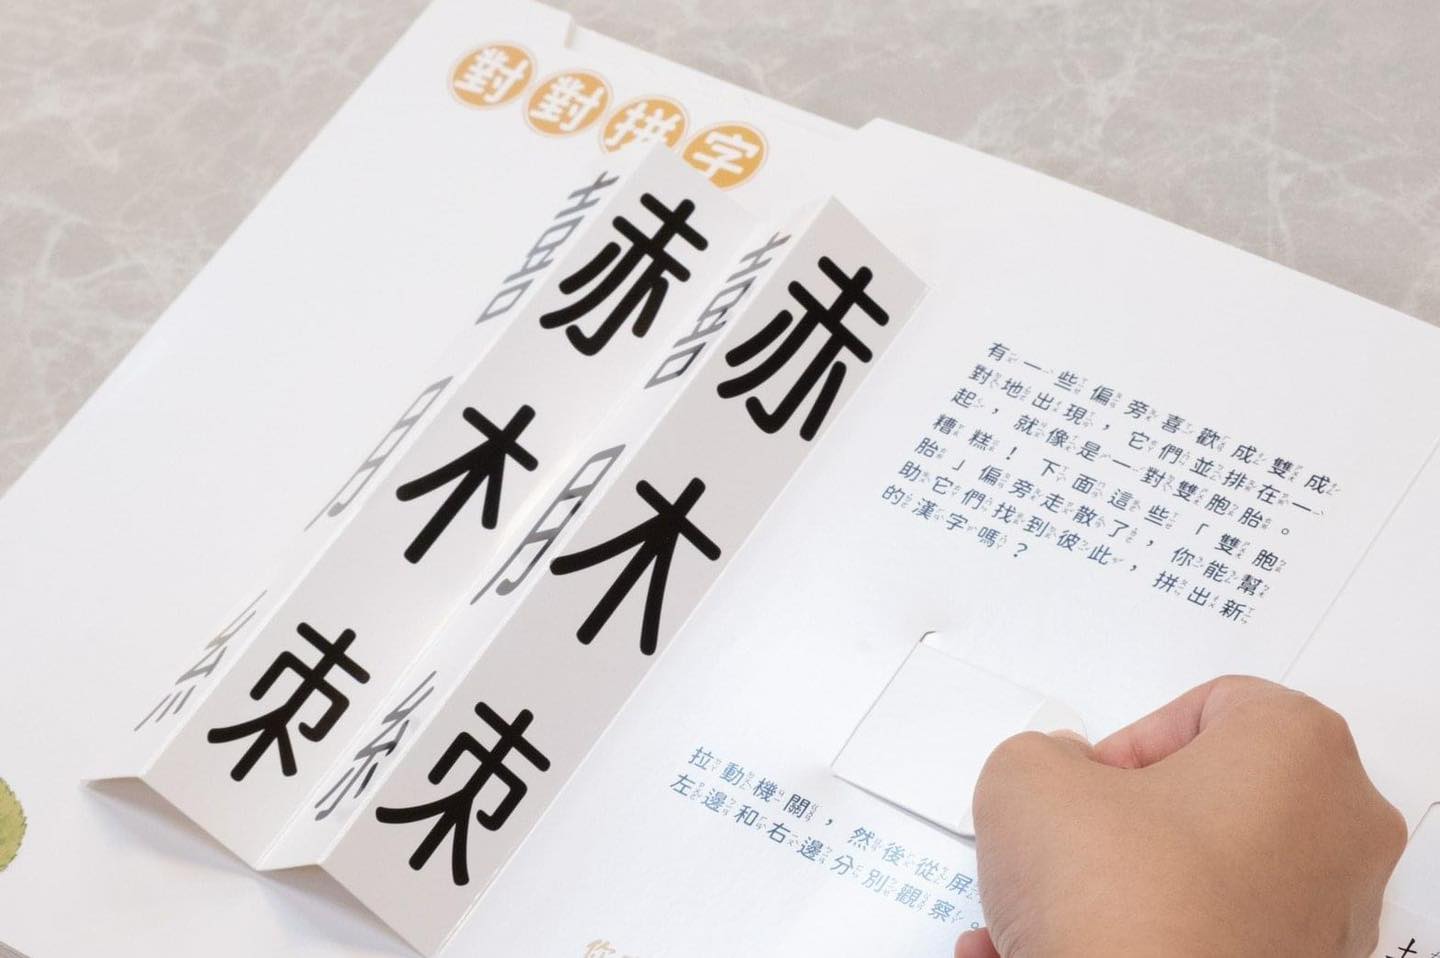 對對拼字
喜 赤 喜 赤
月 木 月 木
糸 朿 糸 朿
有一些偏旁喜歡成雙成
對地出現，它們並排在一
起，就像是一對雙胞胎。
糟糕！下面這些「雙胞
胎」偏旁走散了，你能幫
助它們找到彼此，拼出新
的漢字嗎？
拉動機關，然後從屏
左邊和右邊分別觀察。
你